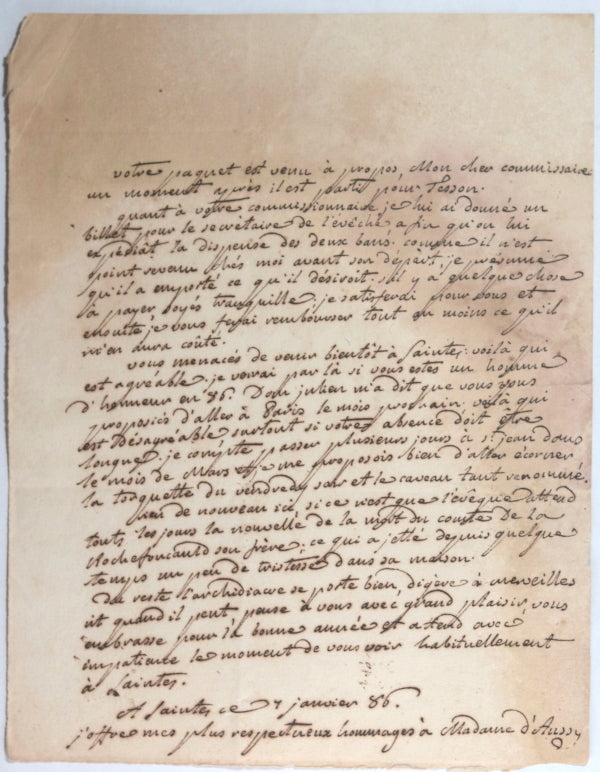 votre paquet est venu à propos, Mon cher commissaire
un moment après il est parti pour Tesson.
quant à votre commissionnaire je lui ai donné un
billet pour le secrétaire de l'évêché afin qu'on lui
expédiât la dispense des deux bans. comme il n'est
point revenu chés moi avant son départ. je présume
qu'il a emporté ce qu'il désiroit. s'il y a quelque chose
à payer soyés tranquille. je satisferai pour vous et
ensuite je vous ferai rembourser tout au moins ce qu'il
m'en aura couté.
vous menacés de venir bientôt à Saintes. voilà qui
est agréable. je verrai par là si vous estes un homme
d'honneur en 86. Dom julien m'a dit que vous vous
proposiés d'aller à Paris le mois prochain. voilà qui
est Désagréable surtout si votre absence doit être
longue. je compte passer plusieurs jours à st jean dans
le mois de Mars et je me proposois bien d'aller écorner
la du vendredy soir et le caveau tant renommé.
rien de nouveau ici, si ce n'est que l'évêque attend
touts les jours la nouvelle de la mort du comte De La
Rochefoucauld son frère. ce qui a jetté depuis quelque
temps un peu de tristesse dans sa maison.
Du reste l'archidiacre se porte bien, digère à merveilles
rit quand il peut pense à vous avec grand plaisir, vous
embrasse pour la bonne année et attend avec
impatiance le moment de vous voir habituellement
à Saintes.
A Saintes ce 7 janvier 86.
j'offre mes plus respectueux hommages à Madame d'Aussy